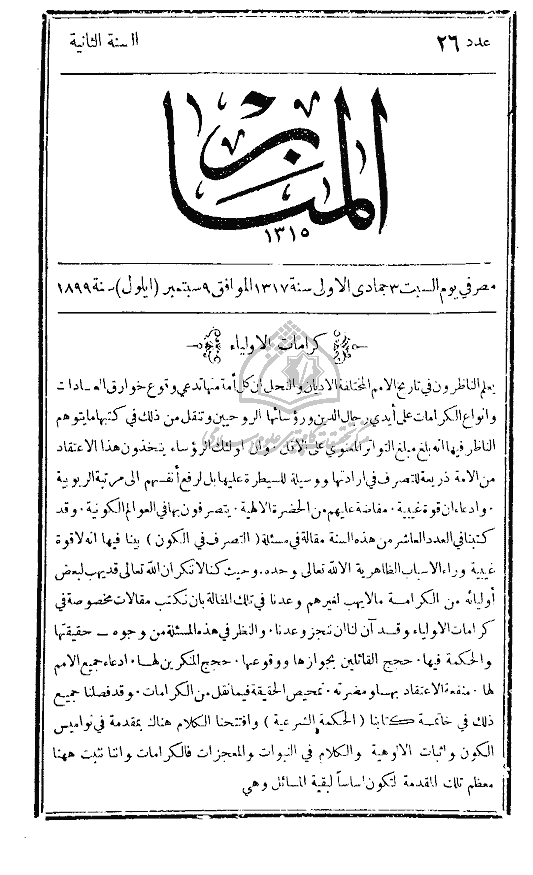 عدد ٢٦
السنة الثانية
المنار
١٣١٥
مصر في يوم السبت ٣ جمادى الاولى سنة ١٣١٧ الموافق ٩ سبتمبر (ايلول) سنة ١٨٩٩
كرامات الاولياء
يعلم الناظرون في تاريخ الامم المختلفة الاديان والنحل ان كل أمة منها تدعي وقوع خوارق العادات
وانواع الكرامات على أيدي رجال الدين ورؤسائها الروحيين وتنقل من ذلك في كتبها ما يتوهم
الناظر فيها انه بلغ مبلغ التواتر المعنوي على الاقل وان اولئك الرؤساء يتخذون هذا الاعتقاد
من الامة ذريعة للتصرف في ارادتها ووسيلة للسيطرة عليها بل لرفع أنفسهم الى مرتبة الربوبية
٠ وادعاء ان قوة غيبية ٠ مفاضة عليهم من الحضرة الالهية ٠ يتصرفون بها في العوالم الكونية ٠ وقد
كتبنا في العدد العاشر من هذه السنة مقالة في مسئلة ( التصرف في الكون ) بينا فيها انه لا قوة
غيبية وراء الاسباب الظاهرية الا لله تعالى وحده. وحيث كنا لا ننكر ان الله تعالى قد يهب لبعض
أوليائه من الكرامة ما لا يهب لغيرهم وعدنا في تلك المقالة بان نكتب مقالات مخصوصة في
كرامات الاولياء وقد آن لنا ان ننجز وعدنا ٠ والنظر في هذه المسئلة من وجوه – حقيقتها
والحكمة فيها ٠ حجج القائلين بجوازها ووقوعها ٠ حجج المنكرين لها ٠ ادعاء جميع الامم
لها ٠ منفعة الاعتقاد بها ومضرته ٠ تمحيص الحقيقة فيما نقل من الكرامات ٠ وقد فصلنا جميع
ذلك في خاتمة كتابنا ( الحكمة الشرعية ) وافتتحنا الكلام هناك بمقدمة في نواميس
الكون واثبات الالوهية والكلام في النبوات والمعجزات فالكرامات واننا نثبت ههنا
معظم تلك المقدمة لتكون اساساً لبقية المسائل وهي